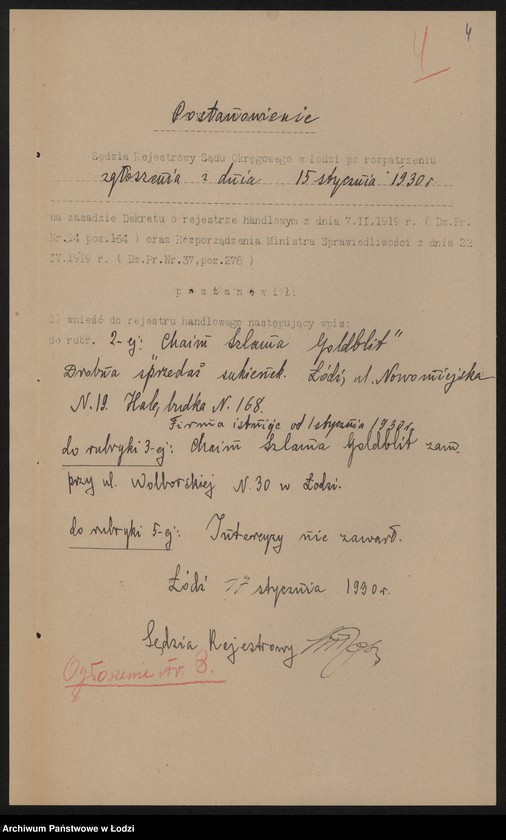 4
4
Postanowienie
Sędzia Rejestrowy Sądu Okręgowego w Łodzi po rozpatrzeniu
zgłoszenia z dnia 15 stycznia 1930 r
na zasadzie Dekretu o rejestrze handlowym z dnia 7.II.1919 r. ( Dz.Pr.
Nr.14 poz.164 ) oraz Rozporządzenia Ministra Sprawiedliwości z dnia 22
IV.1919 r. ( Dz.Pr.Nr.37,poz.278 )
p o s t a n o w i ł:
1) wnieść do rejestru handlowego następujący wpis:
do rubr. 2-ej: "Chaim Szlama Goldblit"
Drobna sprzedaż sukienek. Łódź, ul. Nowomiejska
N. 19. Hale, budka N. 168.
Firma istnieje od 1 stycznia 1930 r.
do rubryki 3-ej: Chaim Szlama Goldblit zam.
przy ul. Wolborskiej N. 30 w Łodzi.
do rubryki 5-ej: Intercyzy nie zawarł.
Łódź 17 stycznia 1930 r.
Sędzia Rejestrowy
Ogłoszenie Nr. 3.
Archiwum Państwowe w Łodzi